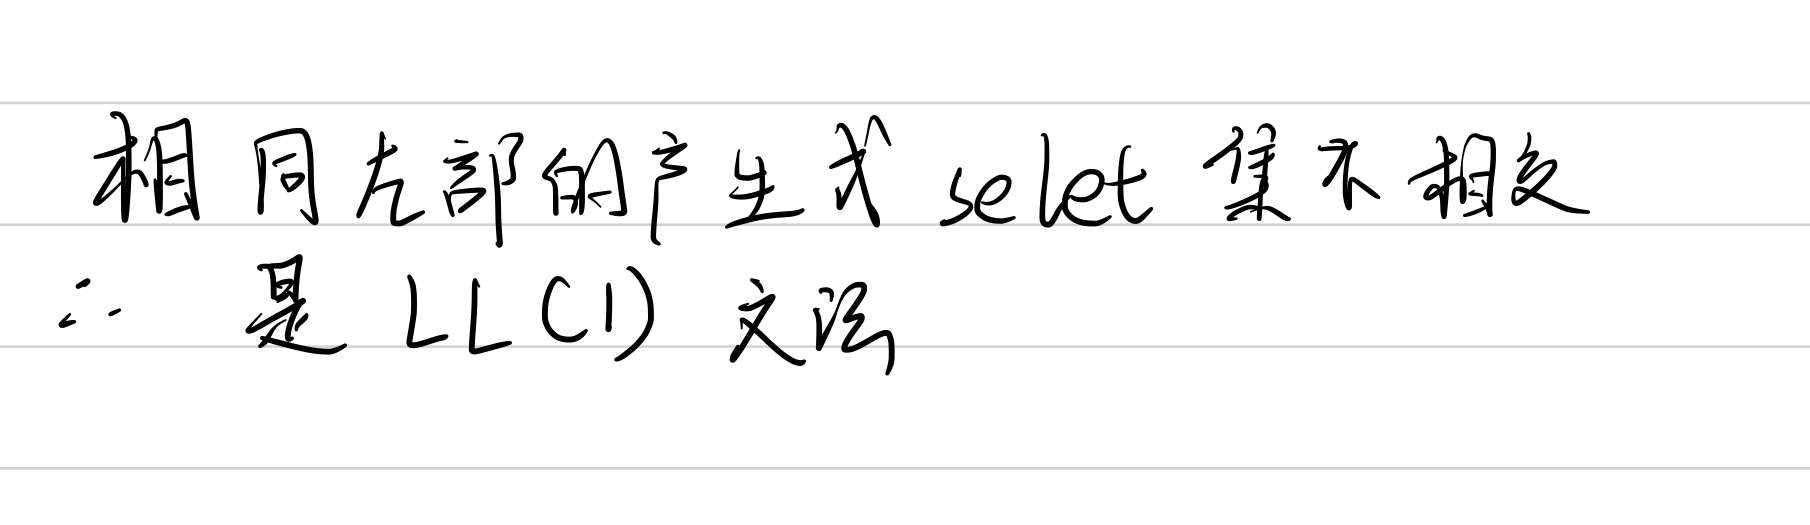 相同左部的产生式 selet 集不相交
∴ 是 LL(1) 文法